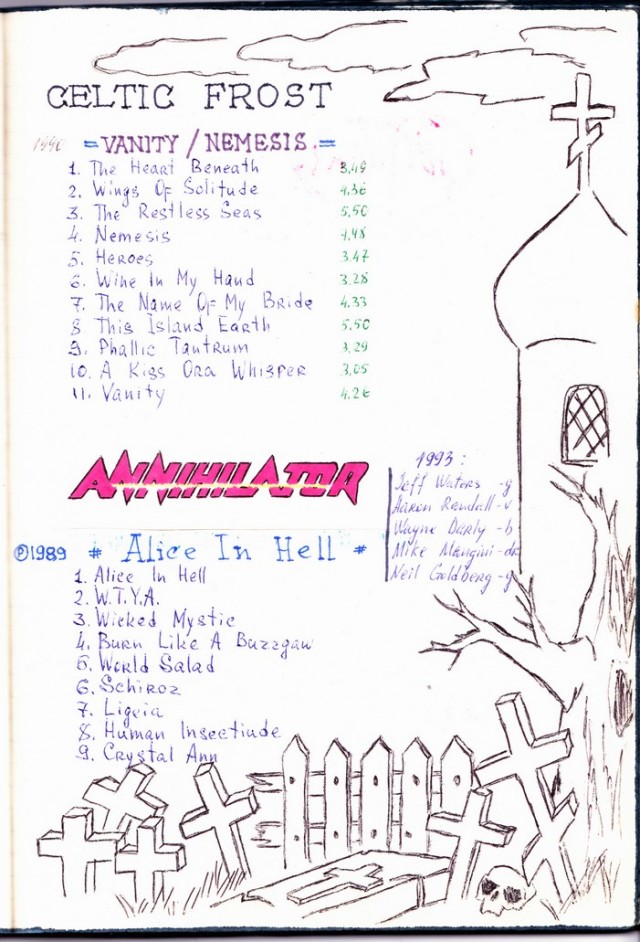 CELTIC FROST
1990 =VANITY / NEMESIS.=
1. The Heart Beneath 3,49
2. Wings Of Solitude 4,36
3. The Restless Seas 5,50
4. Nemesis 4,48
5. Heroes 3.47
6. Wine In My Hand 3.28
7. The Name Of My Bride 4.33
8 This Island Earth 5.50
9. Phallic Tantrum 3,29
10. A Kiss Ora Whisper 3,05
11. Vanity 4.26
ANNIHILATOR
℗1989 # Alice In Hell #
1. Alice In Hell
2. W.T.Y.A.
3. Wicked Mystic
4. Burn Like A Buzzgaw
5. World Salad
6. Schiroz
7. Ligeia
8. Human Insectiude
9. Crystal Ann
1993:
Jeff Waters -g
Aaron Randall -v
Wayne Darly -b
Mike Mangini -dr
Neil Goldberg -g